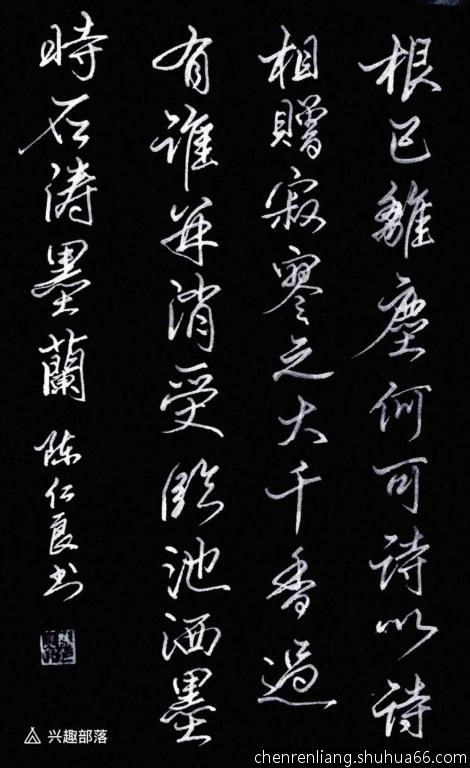 根已離塵何可詩以詩
相贈寂寥之大千香過
有誰并消受臨池洒墨
時石濤墨蘭 陈仁良书
兴趣部落
chenrenliang.shuhua66.com